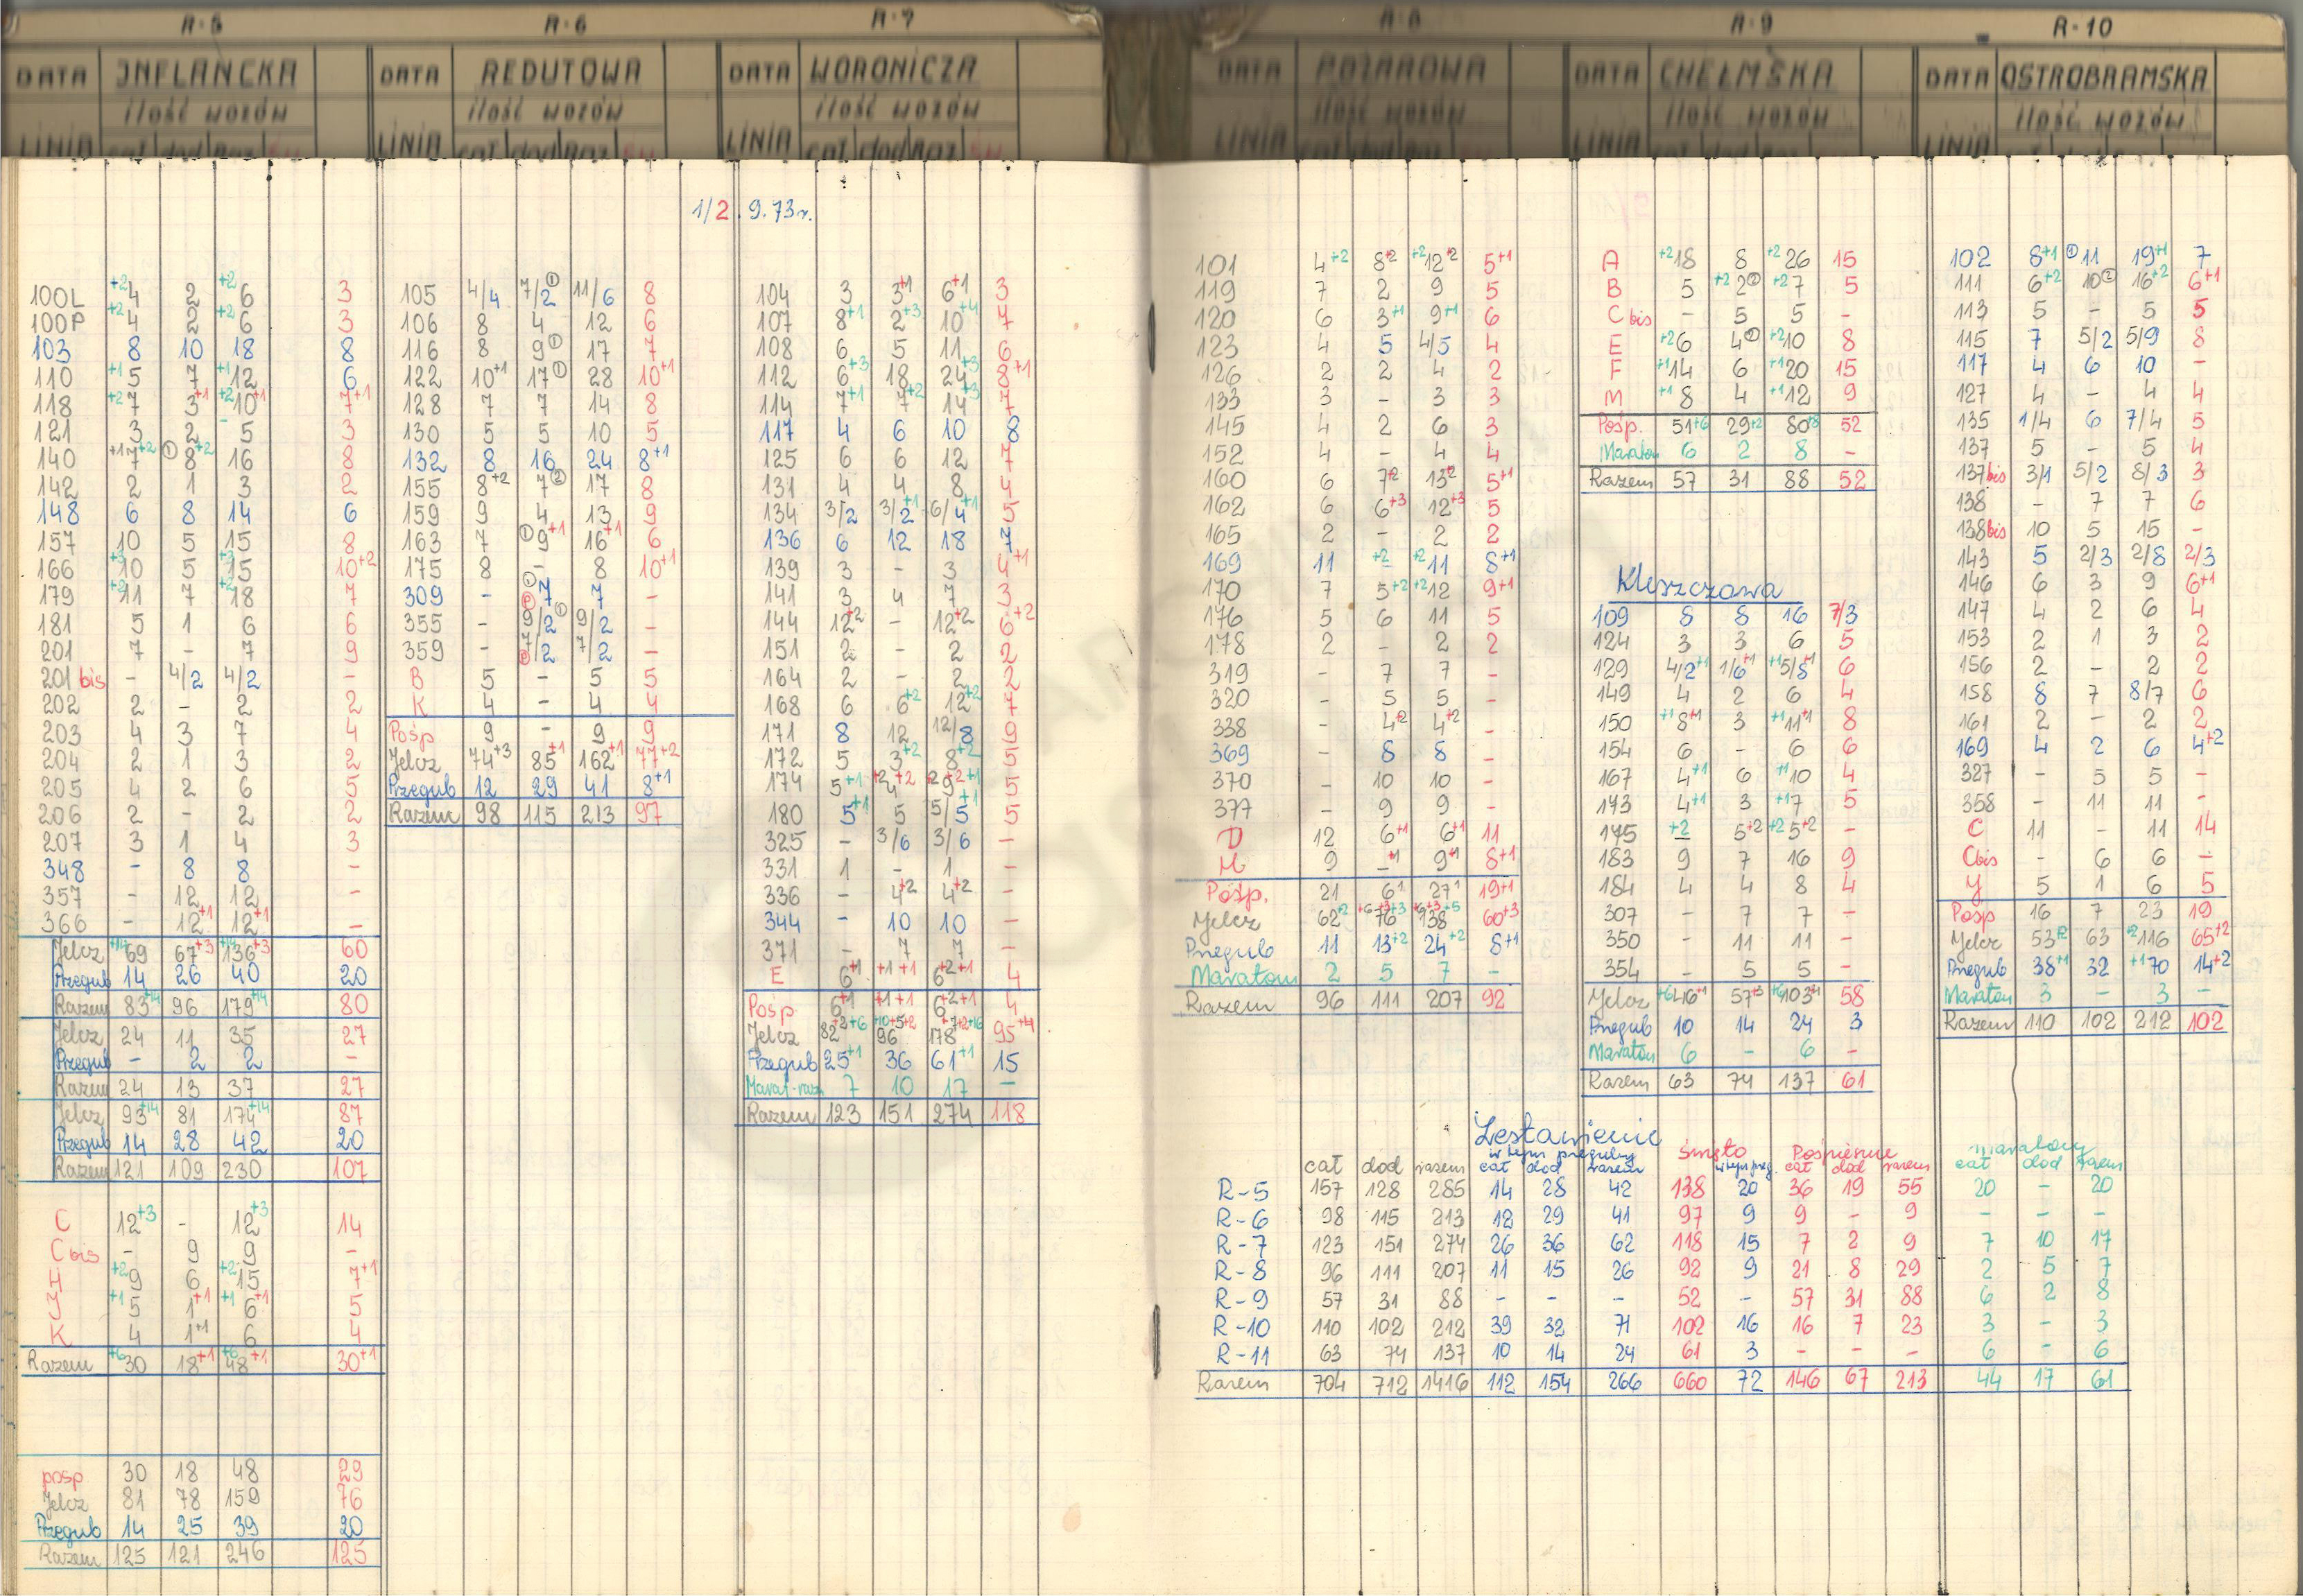 R-5 R-6 R-7 R-8 R-9 R-10
DATA INFLANCKA
ilość wozów
LINIA cał dod Raz
DATA REDUTOWA
ilość wozów
LINIA cał dod Raz
DATA WORONICZA
ilość wozów
LINIA cał dod Raz
DATA POŻAROWA
ilość wozów
LINIA
DATA CHEŁMSKA
ilość wozów
LINIA
DATA OSTROBRAMSKA
ilość wozów
LINIA
1/2.9.73r.
100L +2 4 2 +2 6 3
100P +2 4 2 +2 6 3
103 8 10 18 8
110 +1 5 7 +1 12 6
118 +2 7 3+1 +2 10+1 7+1
121 3 2 5 3
140 +1 7+2 ① 8+2 16 8
142 2 1 3 2
148 6 8 14 6
157 10 5 15 8
166 +3 10 5 +3 15 10+2
179 +2 11 7 +2 18 7
181 5 1 6 6
201 7 - 7 9
201 bis - 4/2 4/2 -
202 2 - 2 2
203 4 3 7 4
204 2 1 3 2
205 4 2 6 5
206 2 - 2 2
207 3 1 4 3
348 - 8 8 -
357 - 12 12 -
366 - 12+1 12+1 -
Jelcz +14 69 67+3 +14 136+3 60
Przegub 14 26 40 20
Razem 83+14 96 179+14 80
Jelcz 24 11 35 27
Przegub - 2 2 -
Razem 24 13 37 27
Jelcz 93+14 81 174+14 87
Przegub 14 28 42 20
Razem 121 109 230 107
C 12+3 - 12+3 14
C bis - 9 9 -
H +2 9 6 +2 15 7+1
J +1 5 1+1 +1 6+1 5
K 4 1+1 6 4
Razem +6 30 18+1 +6 48+1 30+1
posp 30 18 48 29
Jelcz 81 78 159 76
Przegub 14 25 39 20
Razem 125 121 246 125
105 4/4 7/2① 11/6 8
106 8 4 12 6
116 8 9① 17 7
122 10+1 17① 28 10+1
128 7 7 14 8
130 5 5 10 5
132 8 16 24 8+1
155 8+2 7② 17 8
159 9 4 13 9
163 7 ①9+1 16+1 6
175 8 - 8 10+1
309 - ① 7 7 -
355 - 9/2① 9/2 -
359 - 7/2 7/2 -
B 5 - 5 5
K 4 - 4 4
Pośp 9 - 9 9
Jelcz 74+3 85+1 162+1 77+2
Przegub 12 29 41 8+1
Razem 98 115 213 97
104 3 3+1 6+1 3
107 8+1 2+3 10+4 7
108 6 5 11 6
112 6+3 18 24+3 8+1
114 7+1 7+2 14+3 7
117 4 6 10 8
125 6 6 12 7
131 4 4 8 4
134 3/2 3/2+1 6/4+1 5
136 6 12 18 7
139 3 - 3 4+1
141 3 4 7 3
144 12+2 - 12+2 6+2
151 2 - 2 2
164 2 - 2 2
168 6 6+2 12+2 7
171 8 12 12/8 9
172 5 3+2 8+2 5
174 5+1 +2 4+2 +2 9+2+1 5
180 5+1 5 5/5+1 5
325 - 3/6 3/6 -
331 1 - 1 -
336 - 4+2 4+2 -
344 - 10 10 -
371 - 7 7 -
E 6+1 +1+1 6+2+1 4
Pośp 6+1 +1+1 6+2+1 4
Jelcz 82+2+6 +10+5+2 96 178+7+2+16 95+4
Przegub 25+1 36 61+1 15
Marat-raz 7 10 17 -
Razem 123 151 274 118
101 4+2 8+2 +2 12+2 5+1
119 7 2 9 5
120 6 3+1 9+1 6
123 4 5 4/5 4
126 2 2 4 2
133 3 - 3 3
145 4 2 6 3
152 4 - 4 4
160 6 7+2 13+2 5+1
162 6 6+3 12+3 5
165 2 - 2 2
169 11 +2 - +2 11 8+1
170 7 5+2 +2 12 9+1
176 5 6 11 5
178 2 - 2 2
319 - 7 7 -
320 - 5 5 -
338 - 4+2 4+2 -
369 - 8 8 -
370 - 10 10 -
377 - 9 9 -
D 12 6+1 6+1 11
M 9 -+1 9+1 8+1
Pośp. 21 6+1 27+1 19+1
Jelcz 62+2 76 138 60+3
Przegub 11 13+2 24+2 8+1
Maraton 2 5 7 -
Razem 96 111 207 92
A +2 18 8 +2 26 15
B 5 +2 2② +2 7 5
C bis - 5 5 -
E +2 6 4② +2 10 8
F +1 14 6 +1 20 15
M +1 8 4 +1 12 9
Pośp. 51+6 29+2 80+8 52
Maraton 6 2 8 -
Razem 57 31 88 52
Kleszczowa
109 8 8 16 7/3
124 3 3 6 5
129 4/2+1 1/6+1 +1 5/8+1 6
149 4 2 6 4
150 +1 8+1 3 +1 11+1 8
154 6 - 6 6
167 4+1 6 +1 10 4
173 4+1 3 +1 7 5
175 +2 - 5+2 +2 5+2 -
183 9 7 16 9
184 4 4 8 4
307 - 7 7 -
350 - 11 11 -
354 - 5 5 -
Jelcz +6 46+1 57+3 +6 103+4 58
Przegub 10 14 24 3
Maraton 6 - 6 -
Razem 63 74 137 61
102 8+1 ① 11 19+1 7
111 6+2 10② 16+2 6+1
113 5 - 5 5
115 7 5/2 5/9 8
117 4 6 10 -
127 4 - 4 4
135 1/4 6 7/4 5
137 5 - 5 4
137bis 3/1 5/2 8/3 3
138 - 7 7 6
138bis 10 5 15 -
143 5 2/3 2/8 2/3
146 6 3 9 6+1
147 4 2 6 4
153 2 1 3 2
156 2 - 2 2
158 8 7 8/7 6
161 2 - 2 2
169 4 2 6 4+2
327 - 5 5 -
358 - 11 11 -
C 11 - 11 14
Cbis - 6 6 -
Y 5 1 6 5
Posp 16 7 23 19
Jelcz 53+2 63 +2 116 65+2
Przegub 38+1 32 +1 70 14+2
Maraton 3 - 3 -
Razem 110 102 212 102
Zestawienie
w tym przeguby święto Pośpieszne maratony
cał dod razem cał dod razem w tym przeg. cał dod razem cał dod razem
R-5 157 128 285 14 28 42 138 20 36 19 55 20 - 20
R-6 98 115 213 12 29 41 97 9 9 - 9 - - -
R-7 123 151 274 26 36 62 118 15 7 2 9 7 10 17
R-8 96 111 207 11 15 26 92 9 21 8 29 2 5 7
R-9 57 31 88 - - - 52 - 57 31 88 6 2 8
R-10 110 102 212 39 32 71 102 16 16 7 23 3 - 3
R-11 63 74 137 10 14 24 61 3 - - - 6 - 6
Razem 704 712 1416 112 154 266 660 72 146 67 213 44 17 61